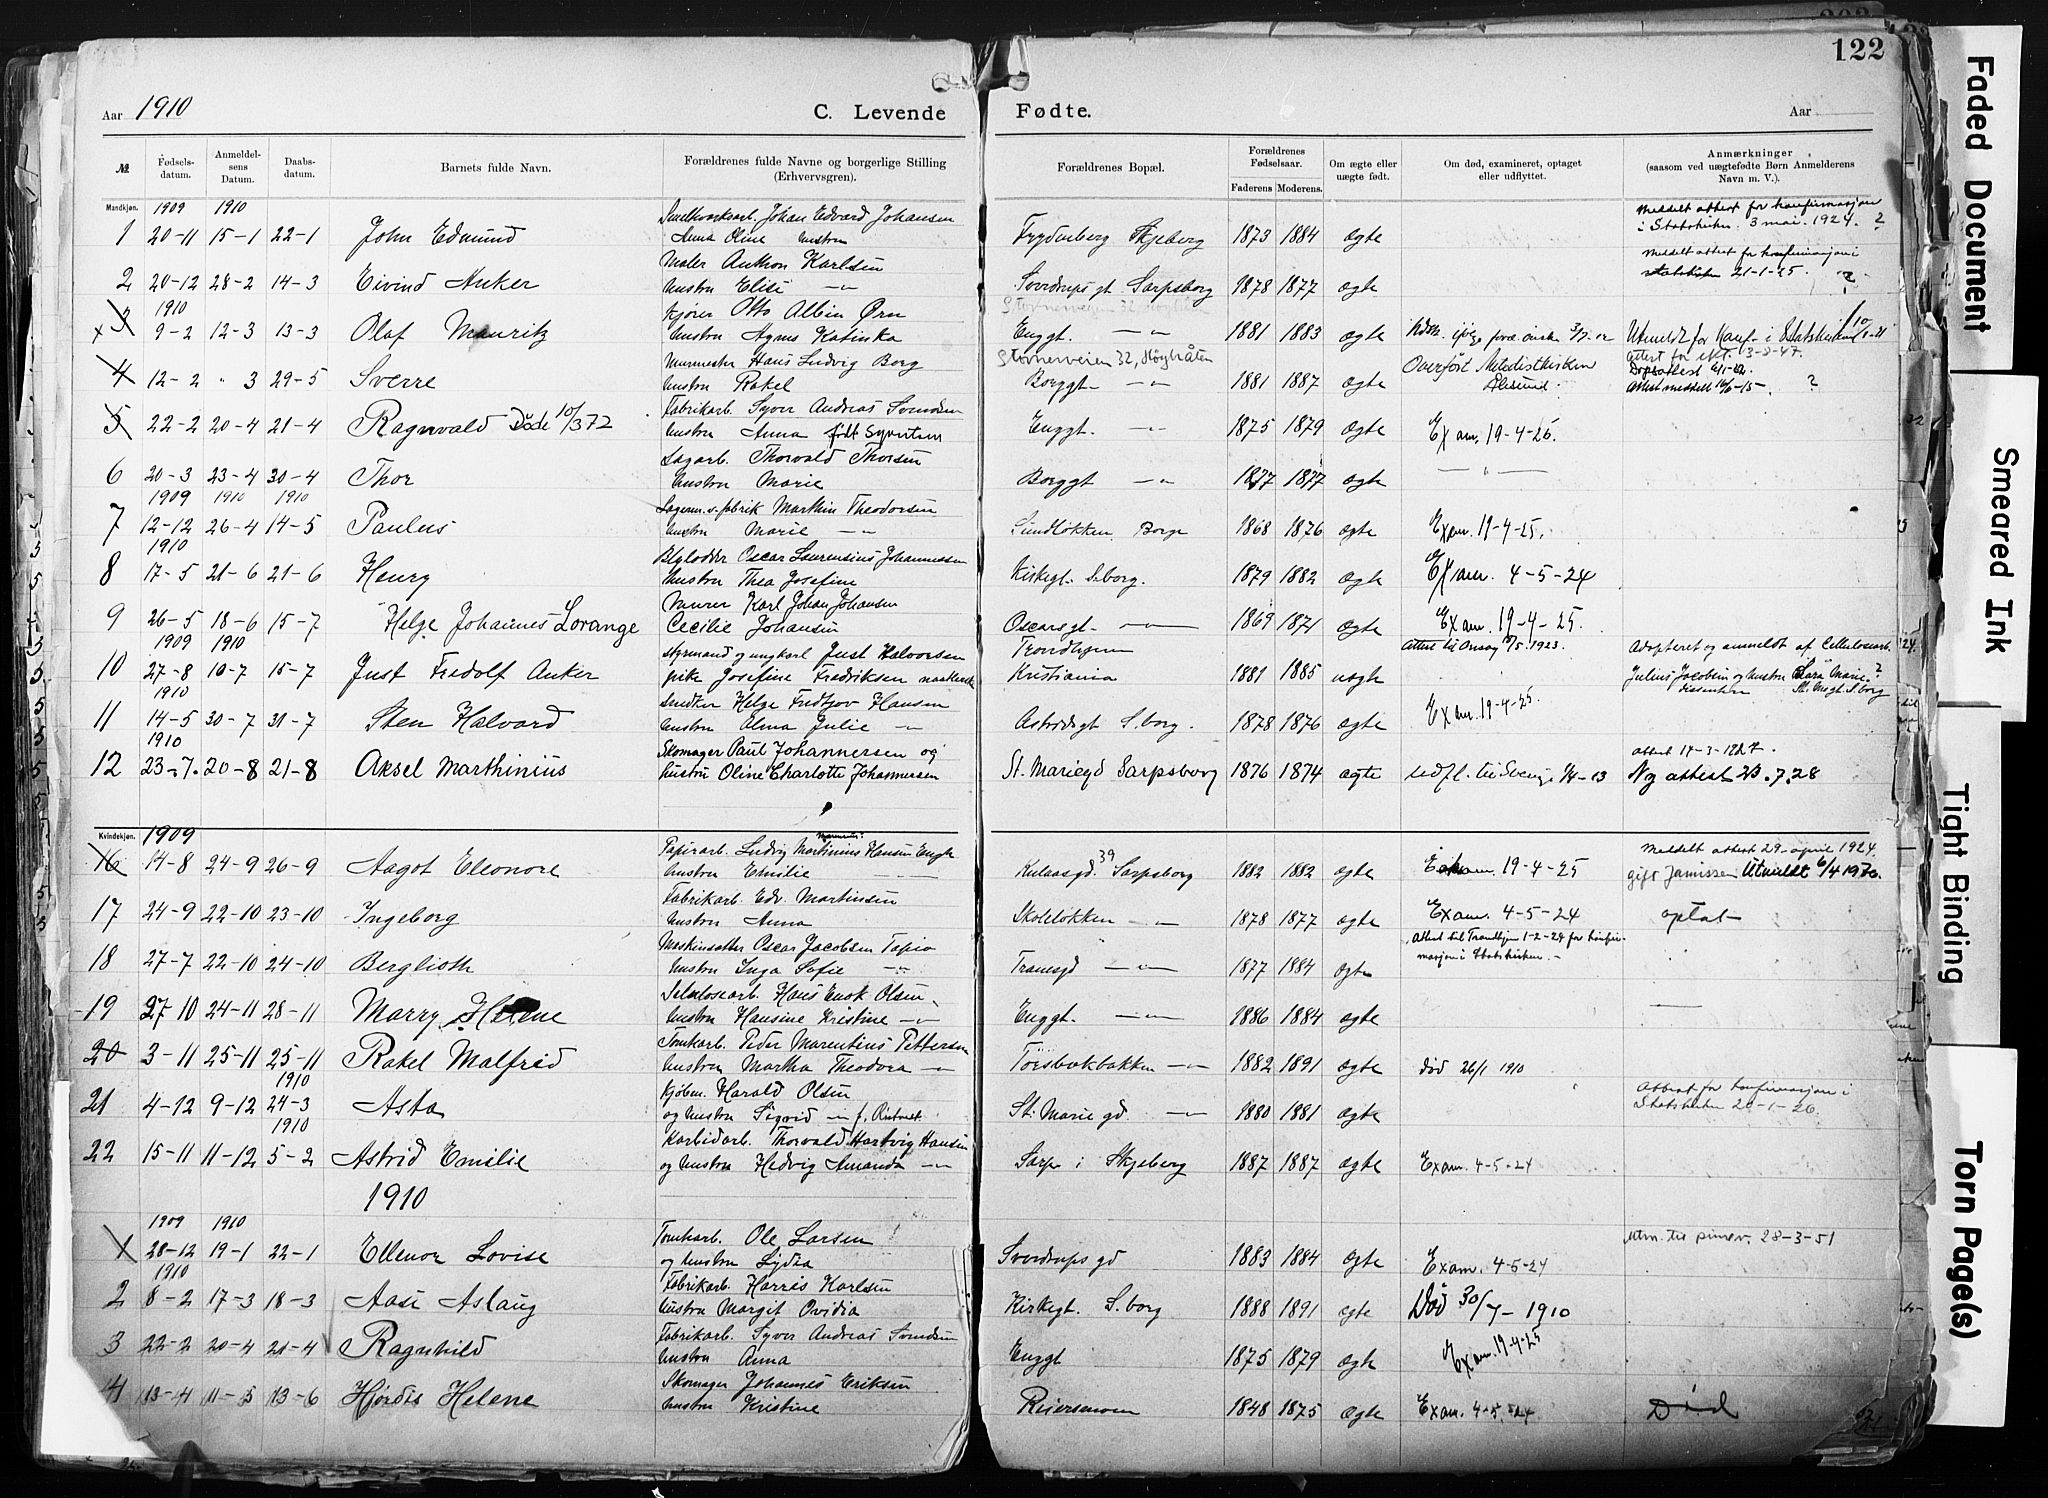 122
Aar 1910 C. Levende Fødte. Aar
№ Fødsels-datum. Anmeldel-sens Datum. Daabs-datum. Barnets fulde Navn. Forældrenes fulde Navne og borgerlige Stilling (Erhvervsgren). Forældrenes Bopæl. Forældrenes Fødselsaar. Faderens Moderens. Om ægte eller uægte født. Om død, examineret, optaget eller udflyttet. Anmærkninger (saasom ved uægtefødte Børn Anmelderens Navn m. V.).
Mandkjøn. 1909 1910
Johan Edvard Johansen Meddelt attest for konfirmasjon
1 20-11 15-1 22-1 John Edmund Anna Oline hustru Skjeberg 1873 1884 ægte i Statskirken. 3 mai. 1924. ?
Maler Anthon Karlsen Meddelt attest for konfirmasjon i
2 20-12 28-2 14-3 Eivind Anker hustru Elise -"- Sverdrups gt. Sarpsborg 1878 1877 ægte statskirken 21-1-25. ?
1910 kjører Otto Albin Ørn
x 3 9-2 12-3 13-3 Olaf Mauritz hustru Agnes Katinka Enggt. -"- 1881 1883 ægte Utmeldt for Konf. i Statskirken
Murmester Hans Ludvig Borg Størnerveien 32, Høysåten Overført Metodistkirken Attest for ekt. 13-8-47.
4 12-2 " 3 29-5 Sverre hustru Rakel Borggt -"- 1881 1887 ægte Ålesund. Attest meddelt ?
Fabrikarb. Syver Andreas Svendsen
5 22-2 20-4 21-4 Ragnvald Døde 10/3 72 hustru Anna født Syvertsen Enggt. -"- 1875 1879 ægte Exam. 19-4-25.
Sagarb. Thorvald Thorsen
6 20-3 23-4 30-4 Thor hustru Marie Borggt -"- 1877 1877 ægte — " —
1909 1910 1910 Marthin Theodorsen
7 12-12 26-4 14-5 Paulus hustru Marie -"- Sundløkken Borge 1868 1876 ægte Exam. 19-4-25.
1910 Oscar Laurensius Johannessen
8 17-5 21-6 21-6 Henry hustru Thea Josefine Kirkegt. S.borg. 1879 1882 ægte Exam. 4-5-24
Murer Karl Johan Johansen
9 26-5 18-6 15-7 Helge Johannes Lorange Cecilie Johansen Oscarsgt. -"- 1869 1871 ægte Exam. 19-4-25.
1909 1910 styrmand og ungkarl Just Halvorsen Trondhjem Attest til Onsøy 1/5. 1923. Adopteret og anmeldt af Cellulosearb.
10 27-8 10-7 15-7 Just Fredolf Anker pike Josefine Fredriksen Kristiania 1881 1885 uægte Julius Jacobsen og hustru Lara Marie ?
1910 Smed Helge Fridtjov Hansen St. Mgt. S.borg
11 14-5 30-7 31-7 Sten Halvard hustru Alma Julie -"- Astridsgt S.borg. 1878 1876 ægte Exam. 19-4-25.
1910 Skomager Paul Johannersen og attest 17-3-1927.
12 23-7. 20-8 21-8 Aksel Marthinius hustru Oline Charlotte Johannersen St. Mariegd Sarpsborg 1876 1874 ægte udfl. til Sverige 1/4-13 Ny attest 23.7.28
Kvindekjøn. 1909
Papirarb. Ludvig Martinius Hansen Engh Meddelt attest 29-april 1924.
16 14-8 24-9 26-9 Aagot Eleonore hustru Emilie Kulaasgd. 39 Sarpsborg 1882 1882 ægte Exam. 19-4-25 gift Janissen Utmeldt 6/4 1976.
Fabrikarb. Edv. Martinsen
17 24-9 22-10 23-10 Ingeborg hustru Anna Skoleløkken -"- 1878 1877 ægte Exam. 4-5-24 optat
Maskinsetter Oscar Jacobsen Tapio Attest til Trondhjem 1-2-24 for konfir-
18 27-7 22-10 24-10 Berglioth hustru Inga Sofie -"- Tranesgd -"- 1877 1884 ægte masjon i Statskirken.
Hans Enok Olsen
19 27-10 24-11 28-11 Marry Helene hustru Hansine Kristine -"- Enggt. -"- 1886 1884 ægte
Tomtearb. Peder Marentius Pettersen
20 3-11 25-11 25-11 Rakel Malfrid hustru Martha Theodora -"- Torsbakbakken -"- 1882 1891 ægte død 26/1 1910
1910 kjøbm. Harald Olsen Attest for konfirmasjon i
21 4-12 9-12 24-3 Asta og hustru Sigrid -"- St. Marie gd. -"- 1880 1881 ægte Statskirken 20-1-26.
1910 Karbidarb. Thorvald Hartvig Hansen
22 15-11 11-12 5-2 Astrid Emilie og hustru Hedvig Amanda -"- Sarp i Skjeberg 1887 1887 ægte Exam. 4-5-24
1910
1909 1910 Tomtearb. Ole Larsen utm. til pinsev. 28-3-51
1 28-12 19-1 22-1 Ellenor Lovise og hustru Lydia Sverdrups gd 1883 1884 ægte Exam. 4-5-24
1910 Fabrikarb. Harris Karlsen
2 8-2 17-3 18-3 Aase Aslaug hustru Margit Ovidia Kirkegt. S.borg 1888 1891 ægte Død 30/7-1910
Fabrikarb. Syver Andreas Svendsen
3 22-2 20-4 21-4 Ragnhild hustru Anna Enggt 1875 1879 ægte Exam. 19-4-25
Skomager Johannes Eriksen
4 13-4 11-5 13-6 Hjørdis Helene hustru Kristine Reiersmoen 1848 1875 ægte Exam. 4-5-24 Død
Faded Document
Smeared Ink
Tight Binding
Torn Page(s)